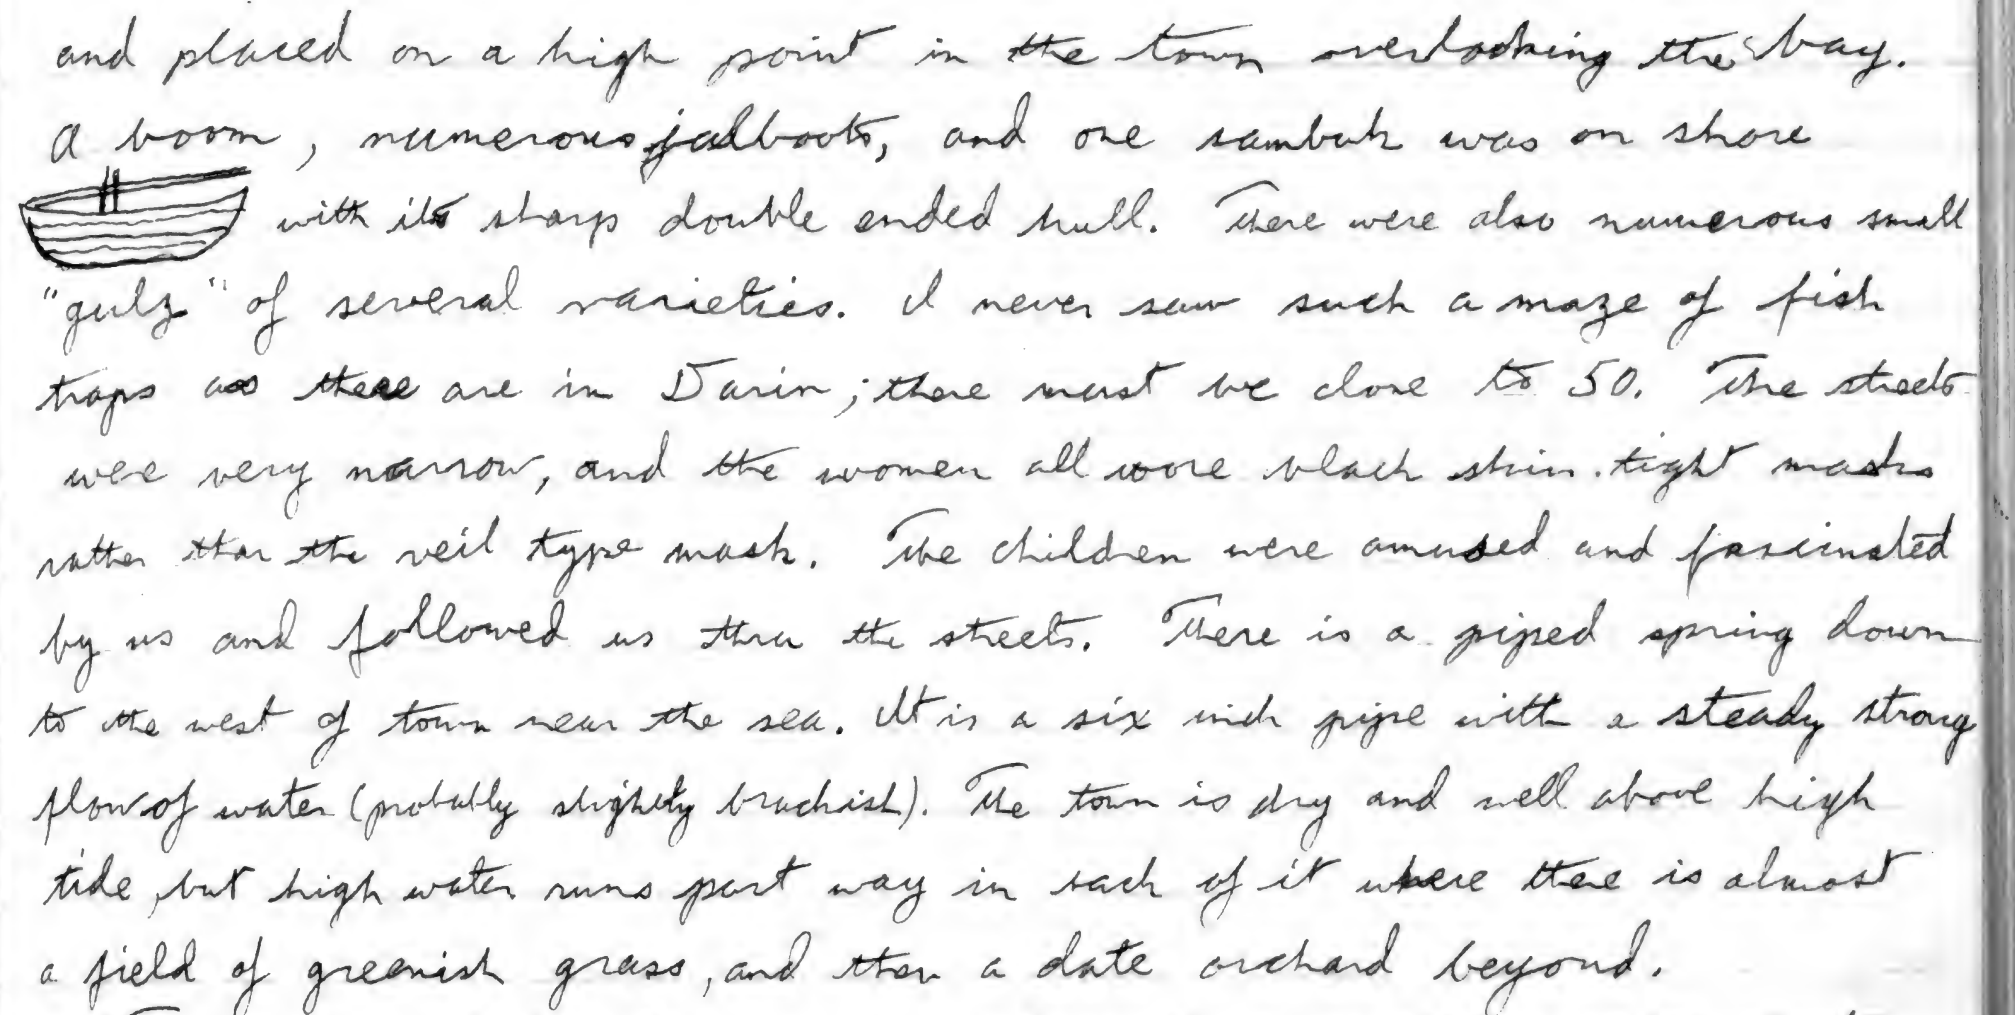 and placed on a high point in the town overlooking the bay.
A boom, numerous jalboots, and one sambuk was on shore
with its sharp double ended hull. There were also numerous small
"gulz" of several varieties. I never saw such a maze of fish
traps as there are in Darin; there must be close to 50. The streets
were very narrow, and the women all wore black skin-tight masks
rather than the veil type mask. The children were amused and fascinated
by us and followed us thru the streets. There is a piped spring down
to the west of town near the sea. It is a six inch pipe with a steady strong
flow of water (probably slightly brackish). The town is dry and well above high
tide, but high water runs part way in back of it where there is almost
a field of greenish grass, and then a date orchard beyond.